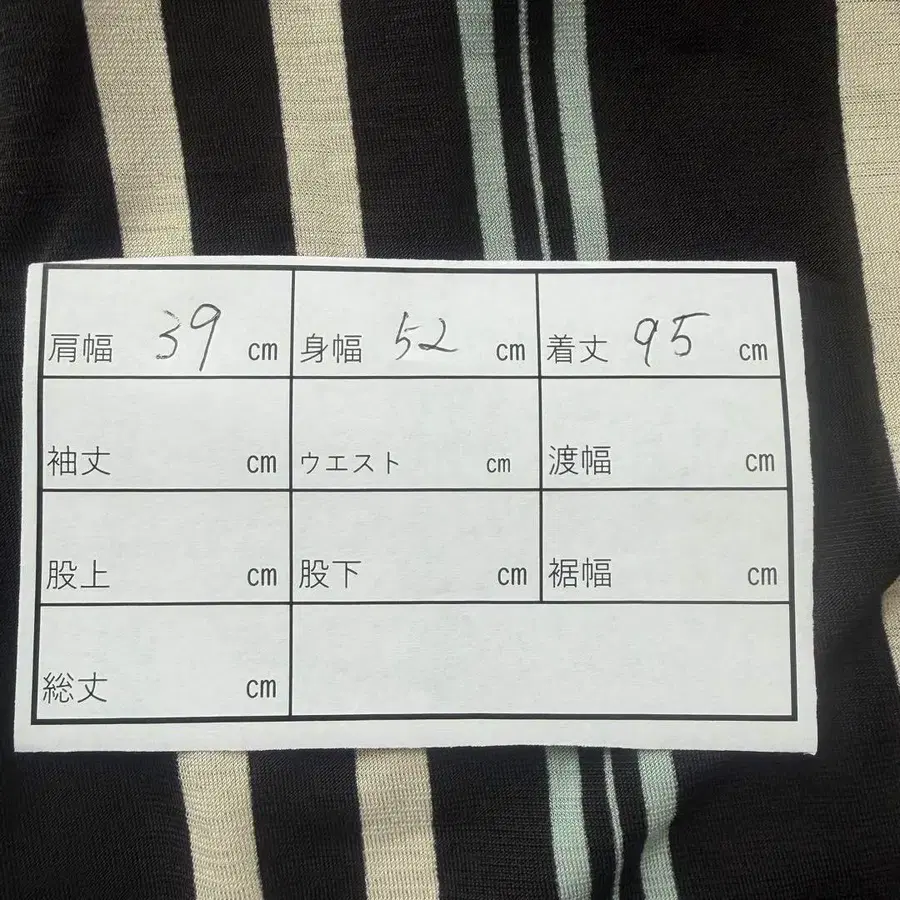 肩幅 39 cm 身幅 52 cm 着丈 95 cm
袖丈 cm ウエスト cm 渡幅 cm
股上 cm 股下 cm 裾幅 cm
総丈 cm